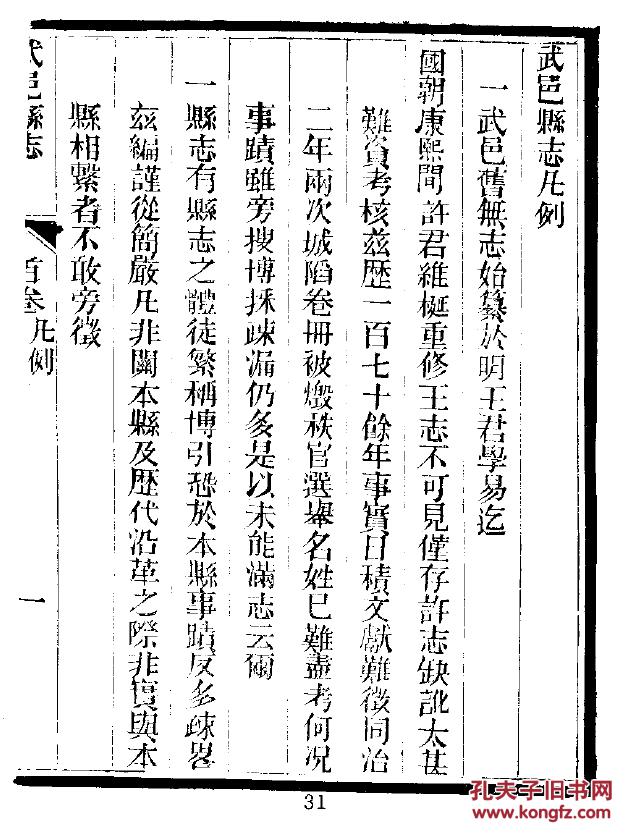 武邑縣志凡例
一武邑舊無志始纂於明王君學易迄
國朝康熙間許君維梃重修王志不可見僅存許志缺訛太甚
難資考核茲歷一百七十餘年事實日積文獻難徵同治
二年兩次城陷卷冊被燬秩官選舉名姓已難盡考何况
事蹟雖旁搜博採疎漏仍多是以未能滿志云爾
一縣志有縣志之體徒繁稱博引恐於本縣事蹟反多疎畧
茲編謹從簡嚴凡非關本縣及歷代沿革之際非實與本
縣相繫者不敢旁徵
武邑縣志
首卷凡例
一
31
孔夫子旧书网